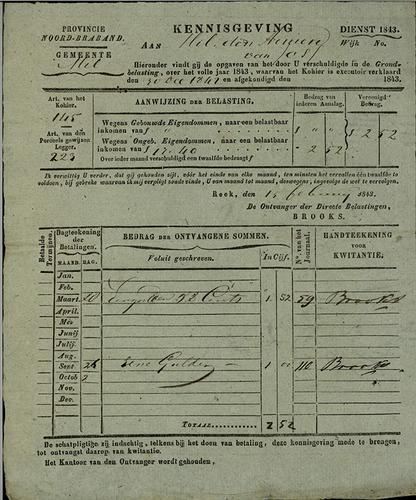 PROVINCIE
NOORD-BRABAND.
GEMEENTE
KENNISGEVING
DIENST 1843.
AAN
Wijk No.
Hieronder vindt gij de opgaven van het door U verschuldigde in de Grond-
belasting, over het volle jaar 1843, waarvan het Kohier is executoir verklaard
den en afgekondigd den
Art. van het
Kohier.
145
Art. van den
Perceels gewijzen
Legger.
223
AANWIJZING DER BELASTING.
Bedrag van
iederen Aanslag.
Vereenigd
Bedrag.
Wegens Gebouwde Eigendommen, naar een belastbaar
inkomen van f
Wegens Ongeb. Eigendommen, naar een belastbaar
inkomen van f 17.40 2 52
2 52
Over ieder maand verschuldigd een twaalfde bedragt f
Ik verwittig U verder, dat gij gehouden zijt, vóór het einde van elke maand, ten minsten het vervallen één twaalfde te
voldoen, bij gebreke waarvan ik mij verpligt zoude vinden, U van maand tot maand, deswegens, ingevolge de wet te vervolgen.
Reek, den 15 february 1843.
De Ontvanger der Directe Belastingen,
BROOKS.
Betaalde
Termijnen.
Dagteekening
der
Betalingen.
MAAND. DAG.
BEDRAG DER ONTVANGENE SOMMEN.
Voluit geschreven.
In Cijf.
No. van het
Journaal.
HANDTEEKENING
VOOR
KWITANTIE.
Jan.
Feb.
Maart. 20 52 Cents 1 52 59 Brooks
April.
Mei
Junij.
Julij.
Aug.
Sept. 26 Eene Gulden 1 00 110 Brooks
Octob 2
Nov.
Dec.
TOTAAL. 2 52
De schatpligtige zij indachtig, telkens bij het doen van betaling, deze kennisgeving mede te brengen,
tot ontvangst daarop van kwitantie.
Het Kantoor van den Ontvanger wordt gehouden,